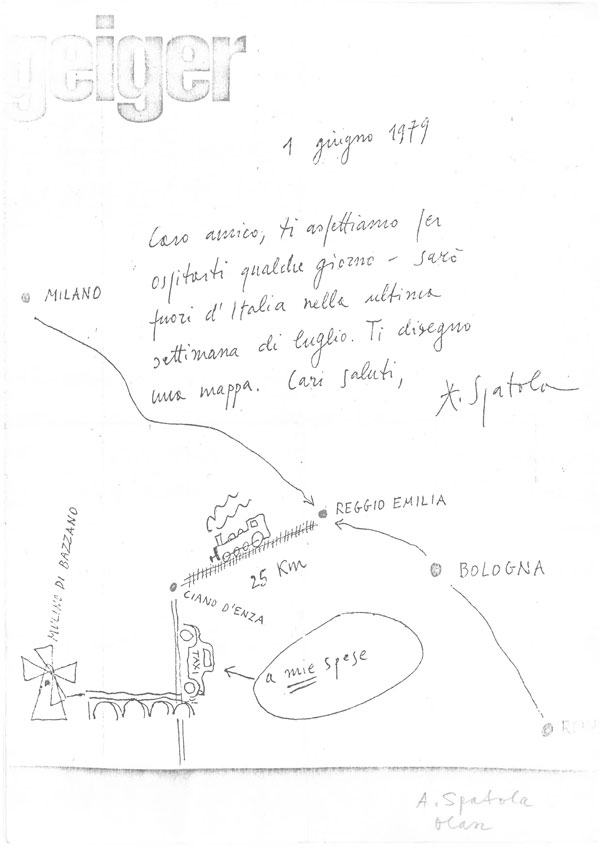 geiger
1 giugno 1979
Caro amico, ti aspettiamo per
ospitarti qualche giorno – sarò
fuori d'Italia nella ultima
settimana di luglio. Ti disegno
una mappa. Cari saluti,
A. Spatola
MILANO
REGGIO EMILIA
25 Km
BOLOGNA
CIANO D'ENZA
MULINO DI BAZZANO
TAXI
a mie spese
A. Spatola